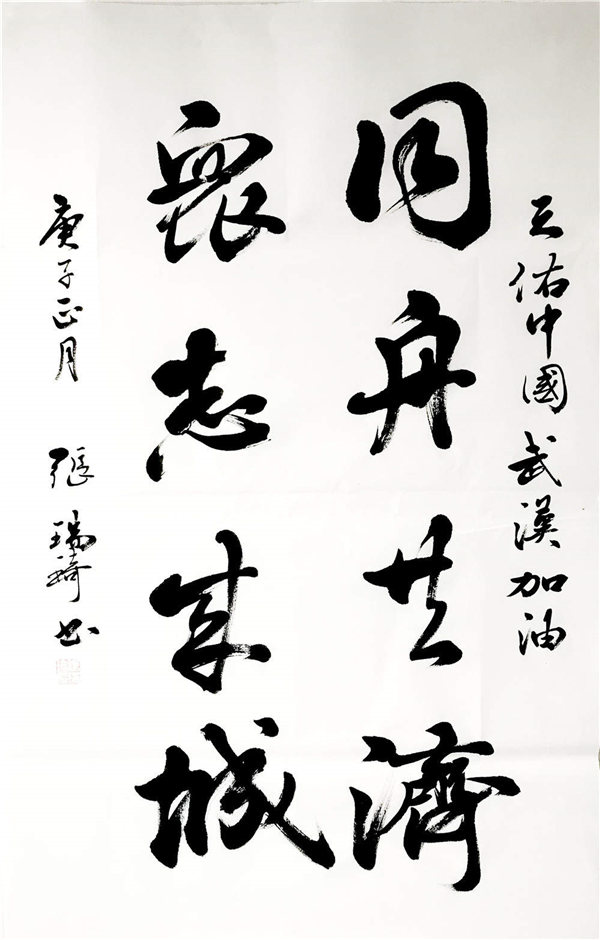 天佑中國武漢加油
同舟共濟
衆志成城
庚子正月 張瑞琦书